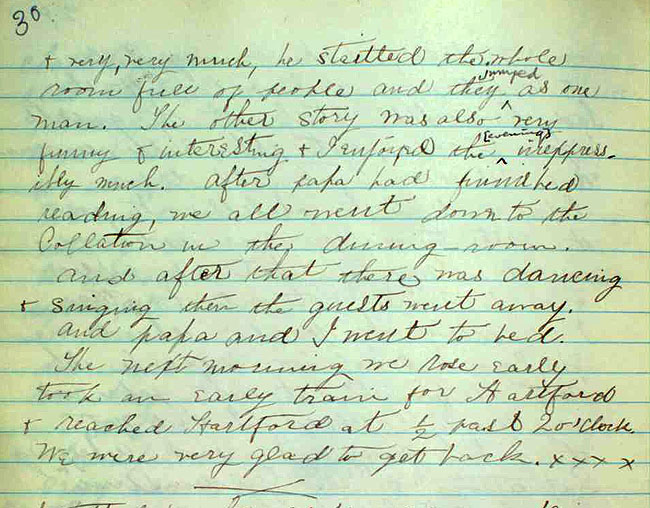 30
& very, very much, he startled the whole
room full of people and they jumped as one
man. The other story was also very
funny & interesting & I enjoyed the evening inexpress-
ibly much. After papa had finished
reading, we all went down to the
Collation in the dining-room.
and after that there was dancing
& singing then the guests went away.
and papa and I went to bed.
The next morning we rose early
took an early train for Hartford
& reached Hartford at ½ past 2 o'clock.
We were very glad to get back. x x x x